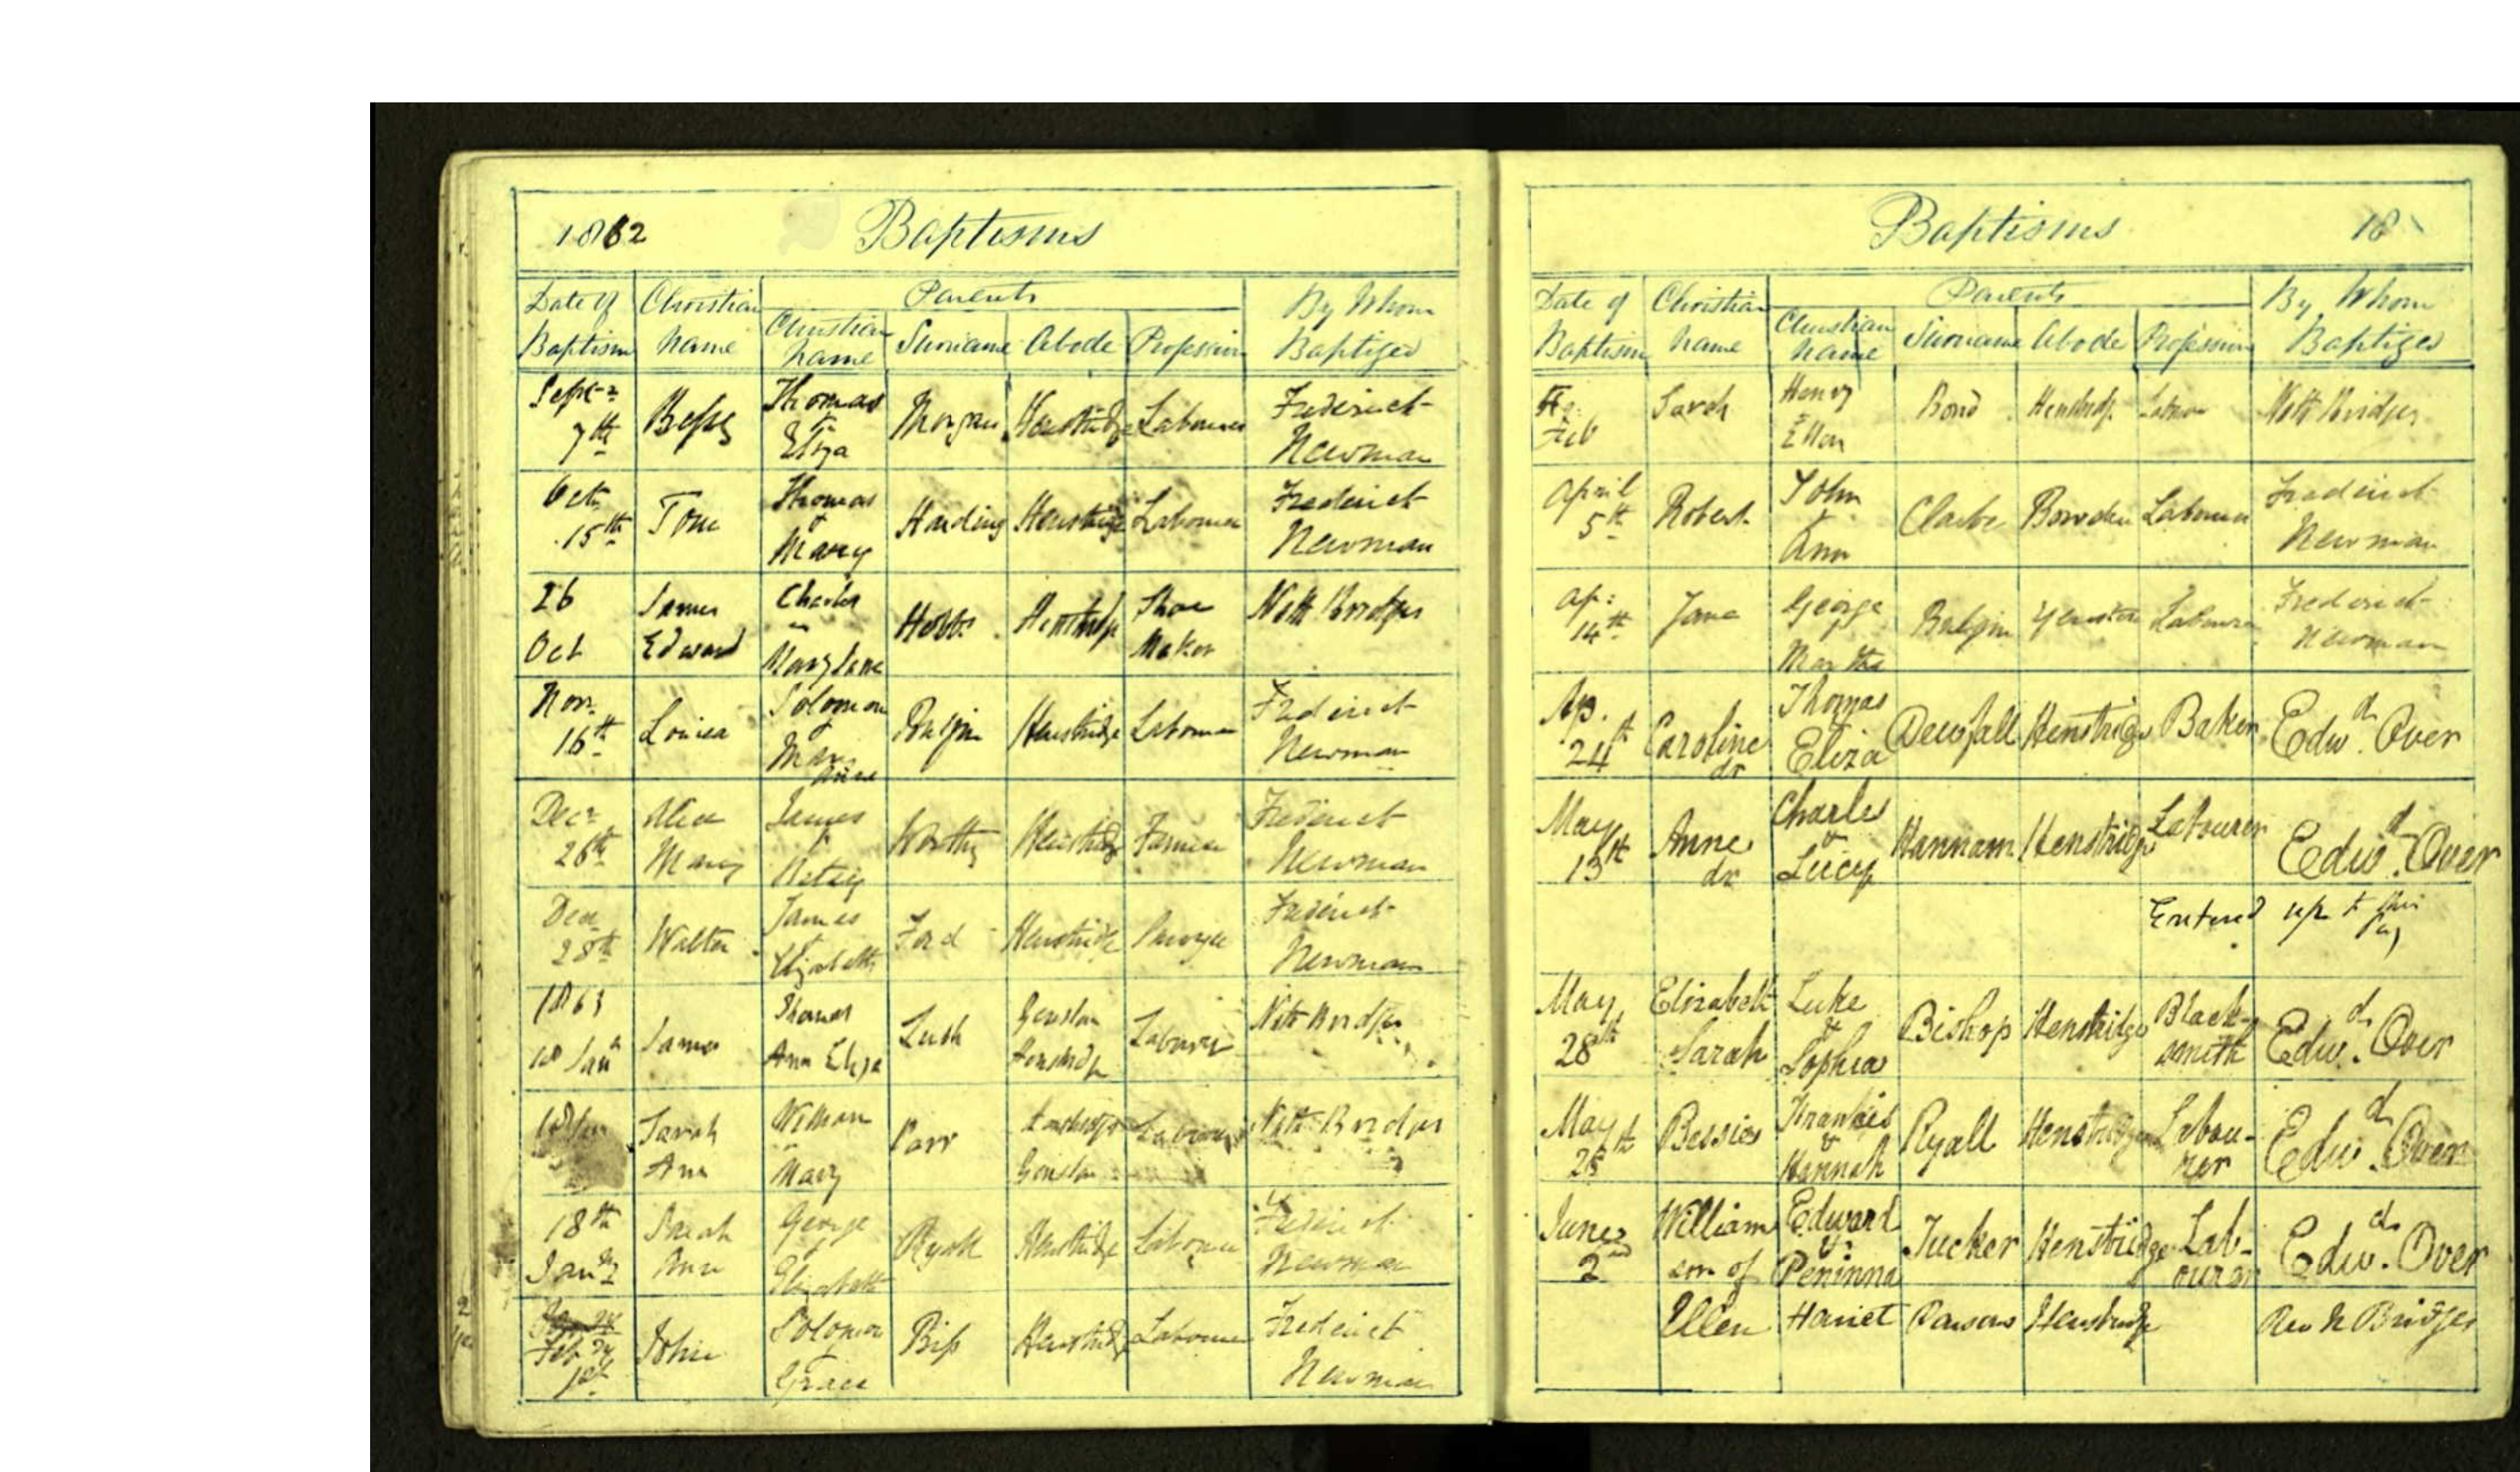 1862 Baptisms
Date of Baptism Christian Name Parents By Whom Baptized
Christian Name Surname Abode Profession
Sept 7th Bessy Thomas & Eliza Morgan Henstridge Labourer Frederick Newman
Oct 15th Tom Thomas & Mary Harding Henstridge Labourer Frederick Newman
26 Oct James Edward Charles Mary Jane Hobbs Henstridge Shoe Maker Nath Bridges
Nov 16th Louisa Solomon & Mary Anne Henstridge Labourer Frederick Newman
Decr 26th Alice Mary James & Betsy Worthy Henstridge Farmer Frederick Newman
Dec 28th Walter James & Elizabeth Ford Henstridge Frederick Newman
1863
18 Jan James Thomas Ann Eliza Lush Henstridge Labourer Nath Bridges
18 Jan Sarah Ann William Mary Parr Henstridge Labourer Nath Bridges
18th Jany Sarah Ann George & Elizabeth Ryall Henstridge Labourer Frederick Newman
Feby 1st John Solomon & Grace Biss Henstridge Labourer Frederick Newman
Baptisms 18
Date of Baptism Christian Name Parents By Whom Baptized
Christian Name Surname Abode Profession
Feb Sarah Henry & Ellen Bond Henstridge Labour Nath Bridges
April 5th Robert John & Ann Clarke Bowden Labourer Frederick Newman
Ap: 14th Jane George & Martha Yenston Labourer Frederick Newman
Ap. 24th Caroline dr Thomas Eliza Dewfall Henstridge Baker Edwd. Over
May 13th Anne dr Charles & Lucy Hannam Henstridge Labourer Edwd. Over
Entered up to this
May 28th Elizabeth Sarah Luke & Sophia Bishop Henstridge Black-smith Edwd. Over
May 28th Bessie Francis & Hannah Ryall Henstridge Labou-rer Edwd. Over
June 2nd William son of Edward & Peninna Tucker Henstridge Lab-ourer Edwd. Over
Ellen Harriet Parsons Henstridge Rev N Bridges